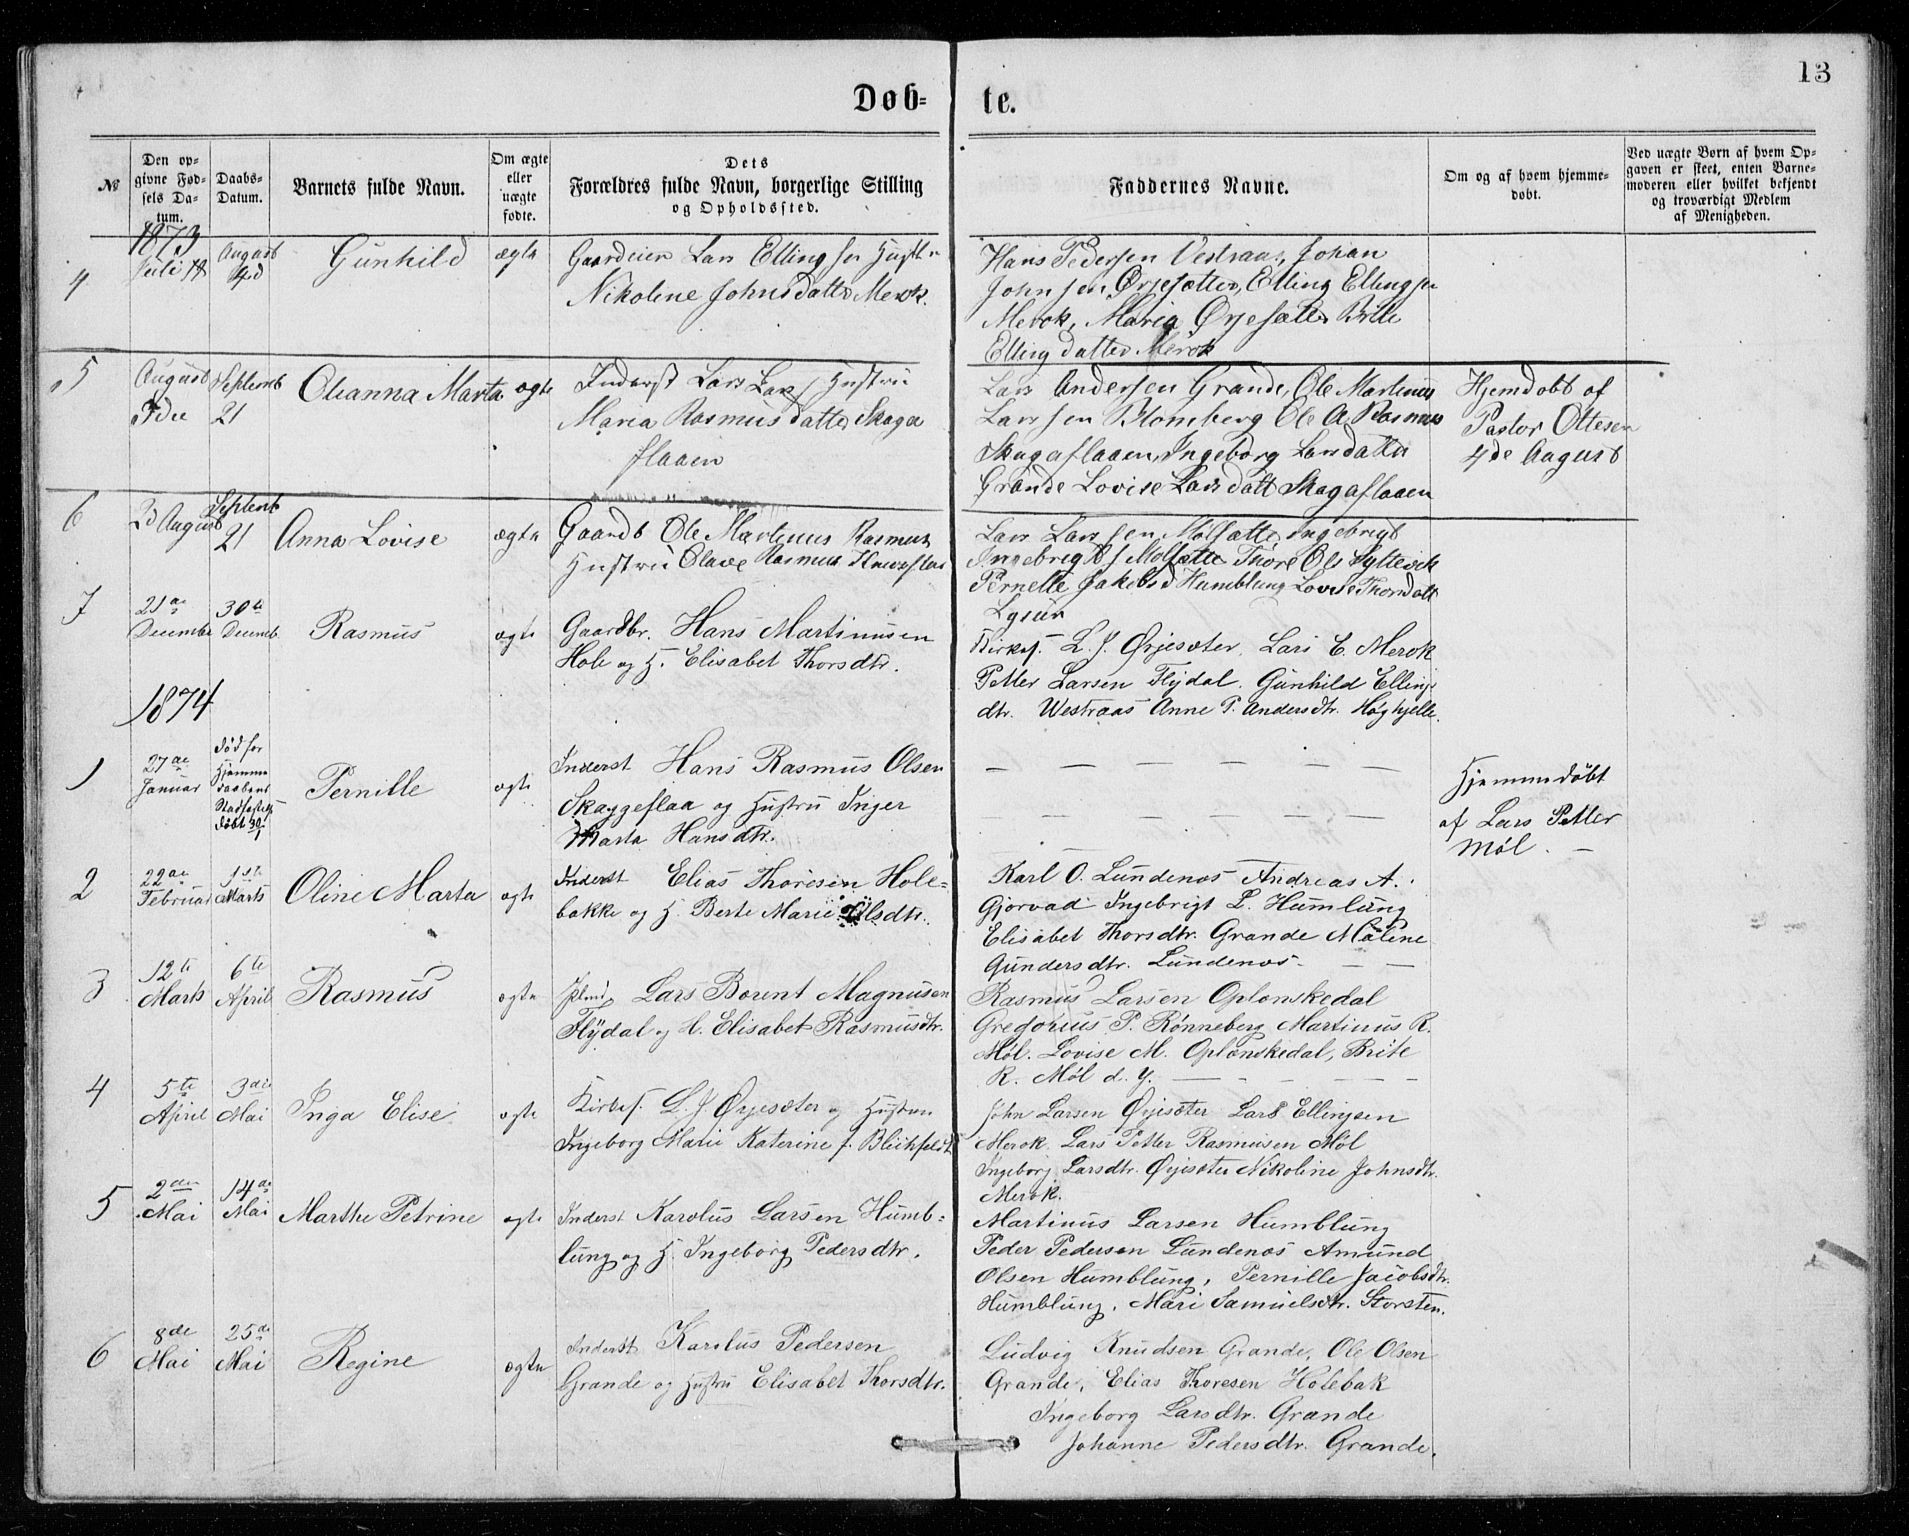 13
Døb- te.
№
Den op-
givne Fød-
sels Da-
tum.
Daabs-
Datum.
Barnets fulde Navn.
Om ægte
eller
uægte
fødte.
Dets
Forældres fulde Navn, borgerlige Stilling
og Opholdssted.
Faddernes Navne.
Om og af hvem hjemme-
døbt.
Ved uægte Børn af hvem Op-
gaven er skeet, enten Barne-
moderen eller hvilket bekjendt
og troværdigt Medlem
af Menigheden.
1873
4
Juli 18
August
Gunhild
ægte
Gaardeier Lars Ellingsen Hustru
Nikoline Johnsdatter Merok.
Hans Pedersen Vestraas, Johan
Johnsen Ørjesætter, Elling Ellingsen
Merok, Maria Ørjesætter Brite
Ellingsdatter Merok
5
August
3die
Septemb
21
Oleanna Marta
ægte
Inderst Lars Lars Hustru
Maria Rasmusdatter Skaga
flaaen
Lars Andersen Grande, Ole Martinus
Larssen Blomberg Ole A Rasmus
Skagaflaaen, Ingeborg Larsdatter
Grande Lovise Larsdatt Skagaflaaen
Hjemdobt af
Pastor Ottesen
4de August
6
August
Septemb
21
Anna Lovise
ægte
Gaardb Ole Martinus Rasmus
Hustru Olave Rasmus
Lars Larssen Mølsætter, Ingebrigt
Ingebrigts Mølsætter Thore Ols Syltevik
Pernelle Jakobsd Humblung Lovise Thorsdatt
7
21de
December
30te
Decemb.
Rasmus
ægte
Gaardbr. Hans Martinusen
Hole og H. Elisabet Thorsdtr.
Kirkes. L. J. Ørjesæter, Lars E. Merok
Petter Larsen Flydal. Gunhild Ellings
dtr. Westraas Anne P. Andersdtr. Høghjelle.
1874
1
27de
Januar
død før
Hjemme
daabens
Stadfæstelse
døbt 30/1
Pernille
ægte
Inderst Hans Rasmus Olsen
Skaggeflaa og Hustru Inger
Marta Hansdtr.
— — — — — — —
— — — — — — —
Hjemmedøbt
af Lars Petter
Møl. —
2
22de
Februar
1ste
Marts
Oline Marta
ægte
Inderst Elias Thoresen Hole-
bakke og H. Berte Marie Olsdtr.
Karl O. Lundenæs Andreas A.
Gjørvad Ingebrigt L. Humlung
Elisabet Thorsdtr. Grande Maline
Gundersdtr. Lundenæs. — —
3
12te
Marts
6te
April
Rasmus
ægte
Lars Borent Magnusen
Flydal og H. Elisabet Rasmusdtr.
Rasmus Larsen Oplænskedal
Gregorius P. Rønneberg Martinus R.
Møl. Lovise M. Oplænskedal, Brite
R. Møl d. y. — - — - —
4
5te
April
3die
Mai
Inga Elise
ægte
Kirkes. L. J Ørjesæter og Hustru
Ingeborg Marie Katerine f. Blichfeldt
John Larsen Ørjesæter Lars Ellingsen
Merok. Lars Petter Rasmusen Møl
Ingeborg Larsdtr. Ørjesæter Nikoline Johnsdtr.
Merok.
5
2den
Mai
14de
Mai
Marthe Petrine
ægte
Inderst Karolus Larsen Humb-
lung og H. Ingeborg Pedersdtr.
Martinus Larsen Humblung
Peder Pedersen Lundenæs Amund
Olsen Humblung, Pernille Jacobsdtr.
Humblung, Mari Samuelsdtr. Storsten.
6
8de
Mai
25de
Mai
Regine
ægte
Inderst Karolus Pedersen
Grande og Hustru Elisabet Thorsdtr.
Ludvig Knudsen Grande, Ole Olsen
Grande, Elias Thoresen Holebak
Ingeborg Larsdtr. Grande
Johanne Pedersdtr. Grande.